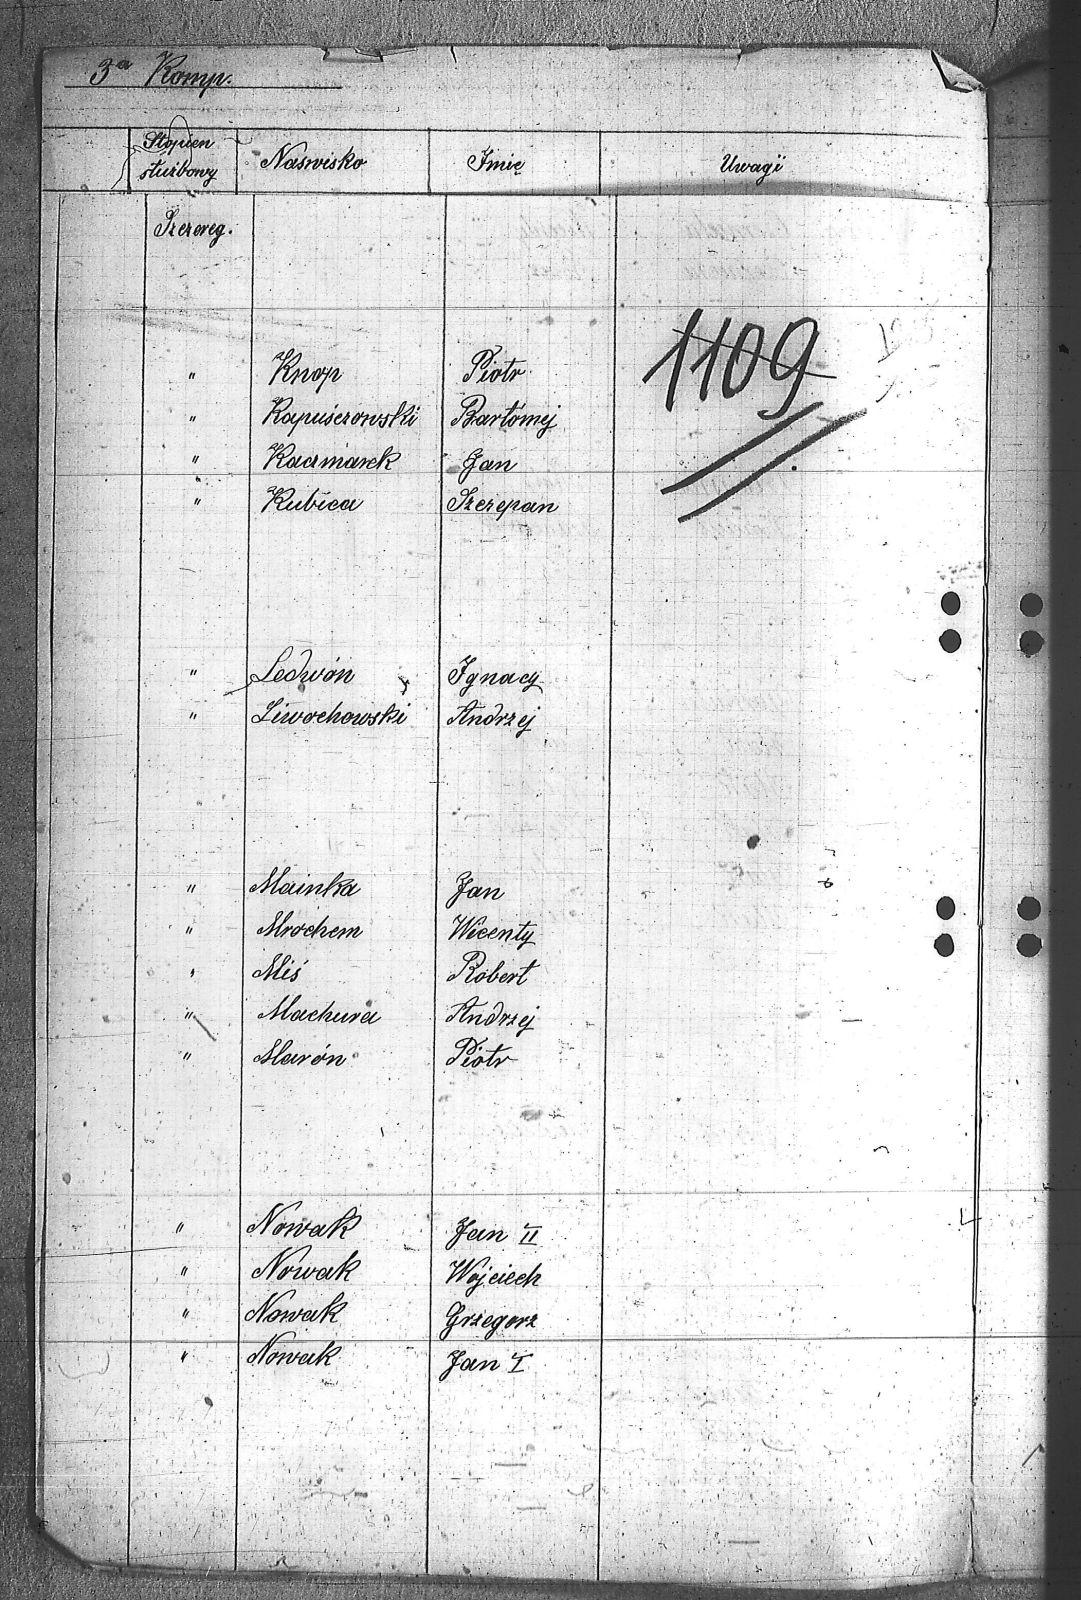 3a Komp.
Stopien służbowy Naswisko Imię Uwagi
Szereg.
1109
" Knop Piotr
" Kapuśczowski Bartómej
" Kaczmarek Jan
" Kubica Szczepan
" Ledwón Ignacy
" Liwochowski Andrzej
" Mainka Jan
" Mrochem Wicenty
" Miś Robert
" Machura Andrzej
" Maroń Piotr
" Nowak Jan II
" Nowak Wojciech
" Nowak Grzegorz
" Nowak Jan I